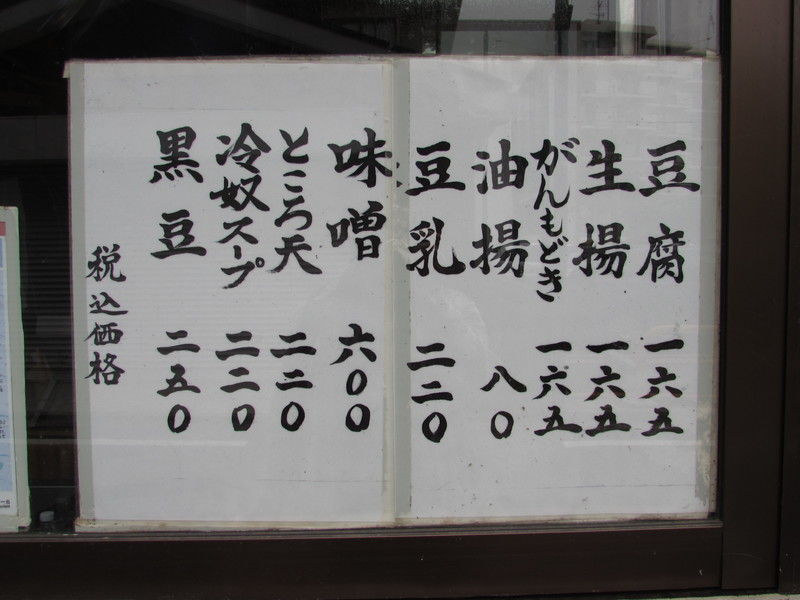 豆腐 一六五
生揚 一六五
がんもどき 一六五
油揚 八〇
豆乳 二二〇
味噌 六〇〇
ところ天 二三〇
冷奴スープ 二二〇
黒豆 二五〇
税込価格